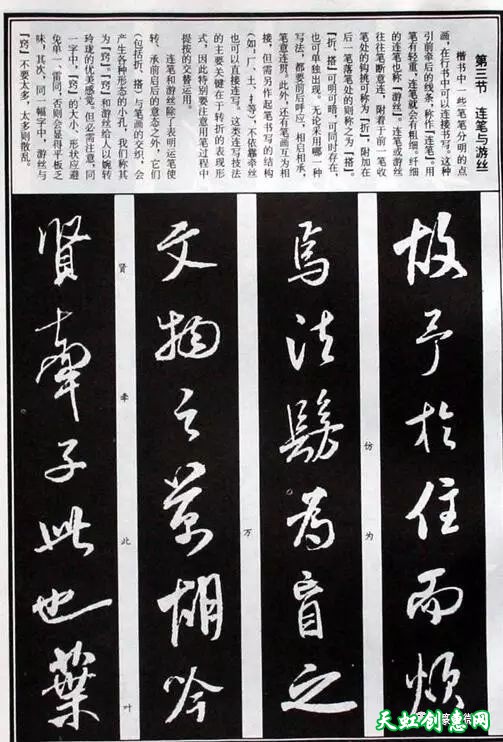 第三节 连笔与游丝
楷书中一些笔笔分明的点
画，在行书中可以连接书写。这种
引前牵后的线条，称作『连笔』。用
笔有轻重，连笔就会有粗细。纤细
的连笔也称『游丝』。连笔或游丝
往往笔断意连，附着于前一笔收
笔处的钩挑可称为『折』，附加在
后一笔落笔处的则称之为『搭』。
『折、搭』可明可暗，可同时存在，
也可单独出现。无论采用哪一种
写法，都要前后呼应，相启相承，
笔意连贯。此外，还有笔画互为相
接，但需另作起笔书写的结构
(如：厂、土、扌等)，不依靠牵丝
也可以直接连写。这类连写技法
的主要关键在于转折的表现形
式，因此特别要注意用笔过程中
提按的交替运用。
连笔和游丝除了表明运笔使
转、承前启后的意态之外，它们
(包括折、搭)与笔画的交织，会
产生各种形态的小孔，我们称其
为『窍』。『窍』和游丝给人以婉转
玲珑的优美感觉。但必需注意，同
一字中，『窍』的大小、形状应避
免单一、雷同，否则会显得平板乏
味，其次，同一幅字中，游丝与
『窍』不要太多，太多则散乱。
故予於住而烦
为
焉法髣为盲之
仿
文物之万胡吟
万
贤牵子此也葉
贤 牵 此 叶
天虹创惠网